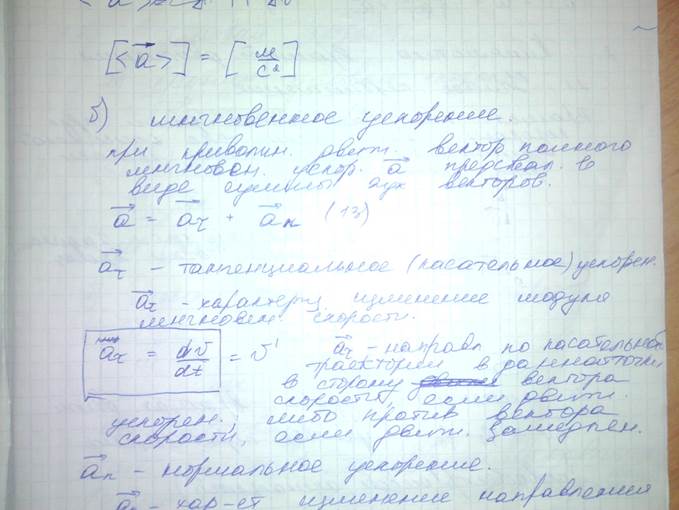 [<a⃗>] = [м/с²]
б) мгновенное ускорение.
при криволин. движ. вектор полного
мгновен. ускор. a⃗ представл. в
виде суммы двух векторов.
a⃗ = a⃗τ + a⃗n (13)
a⃗τ - тангенциальное (касательное) ускорен.
a⃗τ - характериз. изменение модуля
мгновен. скорости.
aτ = dv/dt = v'
a⃗τ - направл по касательной
траектории в данной точки
в сторону вектора
скорости, если движ.
ускорен., либо против вектора
скорости, если движ. замедлен.
a⃗n - нормальное ускорение.
a⃗n - хар-ет изменение направления